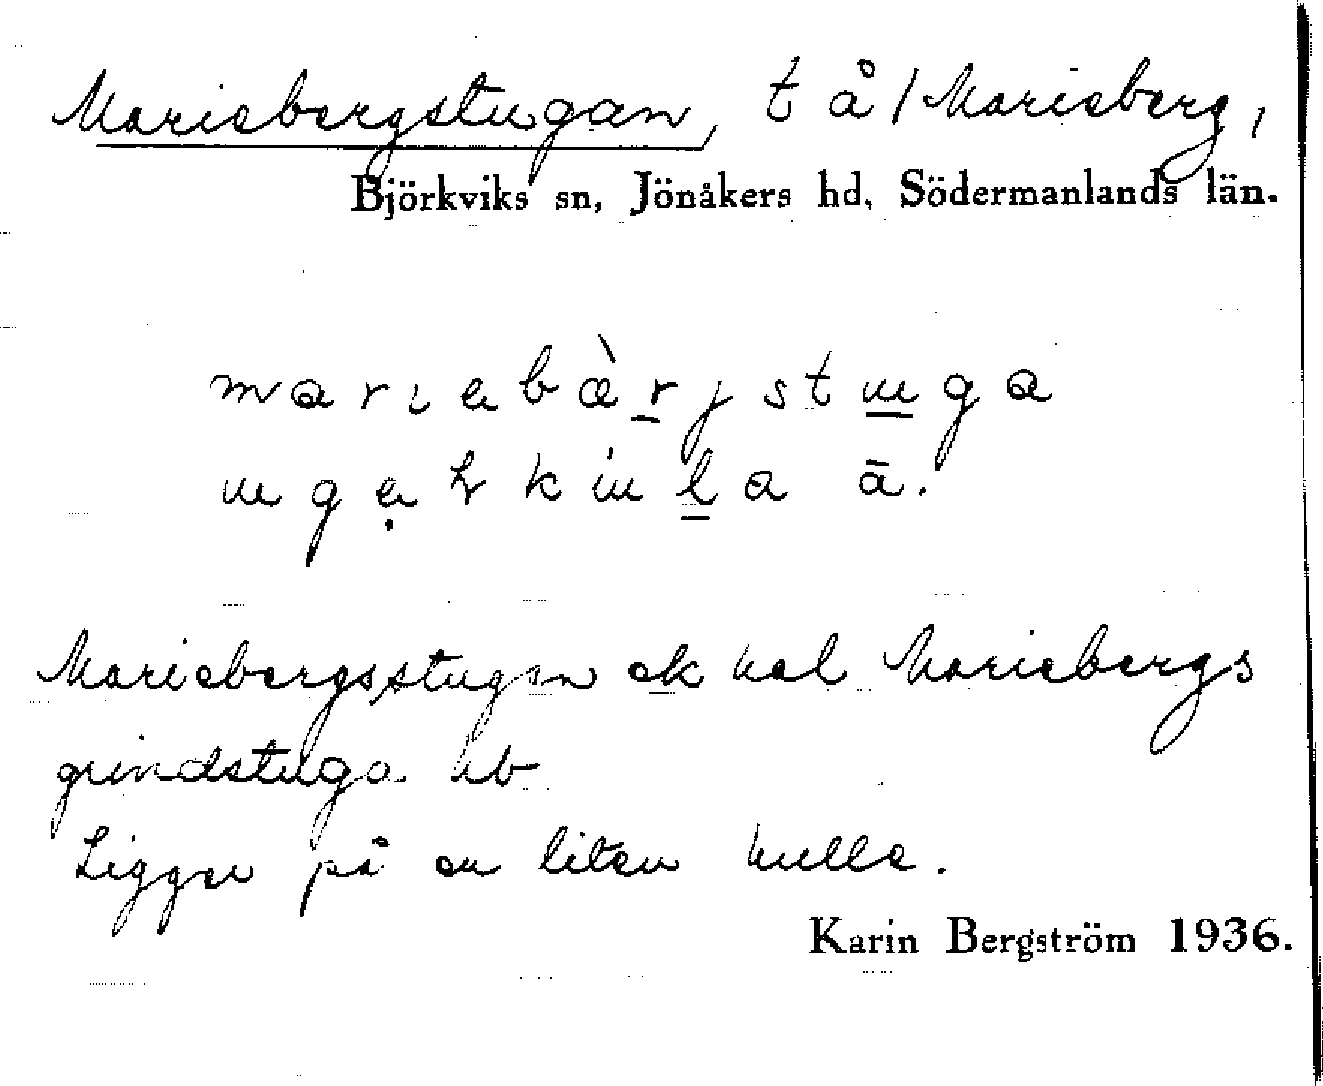 Mariebergstugan, t å / Marieberg,
Björkviks sn, Jönåkers hd, Södermanlands län.
mariebàrjstuga
Mariebergsstugan ek hel Mariebergs
grindstuga hb
Ligger på en liten kulle.
Karin Bergström 1936.